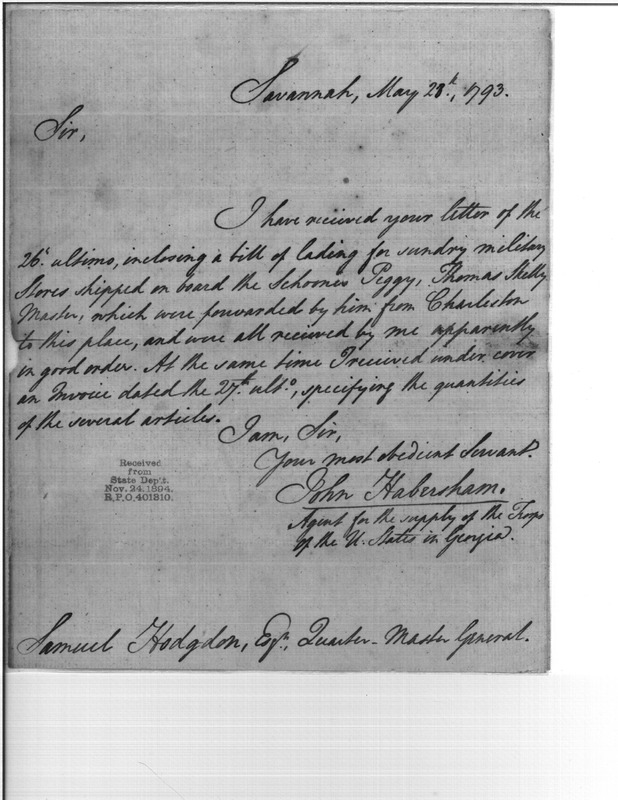 Savannah, May 28th, 1793.
Sir,
I have received your letter of the
26th ultimo, inclosing a bill of lading for sundry military
Stores shipped on board the Schooner Peggy, Thomas Skelly
Master, which were forwarded by him from Charleston
to this place, and were all received by me apparently
in good order. At the same time I received under cover
an Invoice dated the 27th ulto, specifying the quantities
of the several articles.
I am, Sir,
Your most obedient Servant.
John Habersham.
Agent for the supply of the Troops
of the U. States in Georgia.
Received
from
State Dep't.
Nov. 24, 1894.
R.P.O. 401810.
Samuel Hodgdon, Esqr., Quarter-Master General.